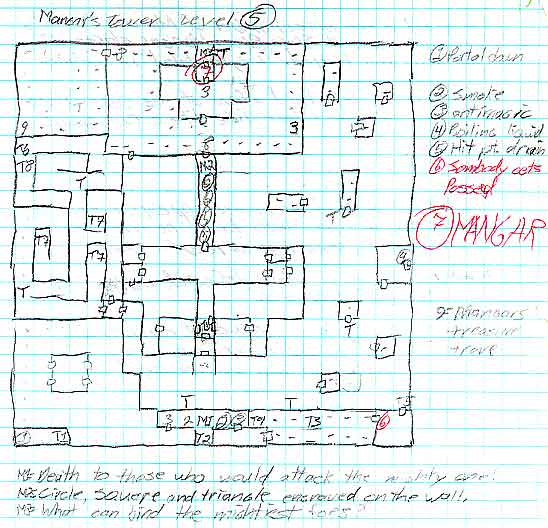 Mangar's Tower Level 5
① Portal down
② smoke
③ antimagic
④ Boiling liquid
⑤ Hit pt. drain
⑥ Sombody gets
Possed
⑦ MANGAR
9- Mangars
treasure
trove
8
M4 T
7
3
9
3
T8
8
T8
M2
T
T7
T
T7
T7
T
T
T
T
T
3 2 M1 T9 T3
6
T1
T2
M1 Death to those who would attack the mighty one!
M2: Circle, square and triangle engraved on the wall.
M3 What can bind the mightiest foes?